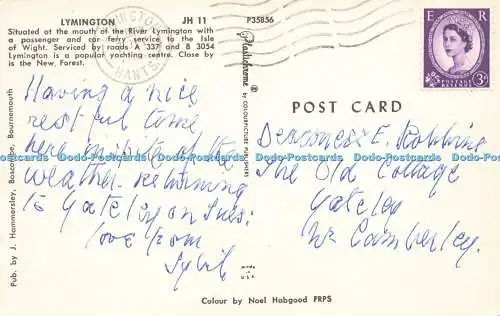 LYMINGTON JH 11
Situated at the mouth of the River Lymington with
a passenger and car ferry service to the Isle
of Wight. Serviced by roads A 337 and B 3054
Lymington is a popular yachting centre. Close by
is the New Forest.
P35856
Plastichrome ®
by COLOURPICTURE PUBLISHERS
HANTS
E R
POSTAGE
REVENUE
3D
POST CARD
Having a nice
restful time
here in spite of the
weather. Returning
to Yateley on Tues:
love from
Sybil
Deaconess E. Robbins
The Old Cottage
Yateley
Nr Camberley.
Pub. by J. Hammersley, Boscombe, Bournemouth
Colour by Noel Habgood FRPS
HW-Postcards